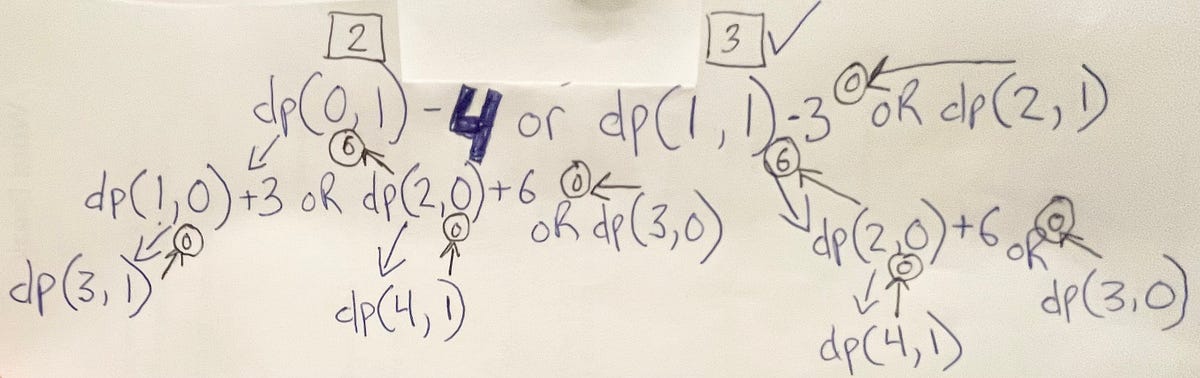 2 3 ✓
dp(0,1)-4 or dp(1,1)-3 0 oR dp(2,1)
6 6
dp(1,0)+3 oR dp(2,0)+6 0 oR dp(3,0) dp(2,0)+6 oR 0 dp(3,0)
0 0 0
dp(3,1) dp(4,1) dp(4,1)